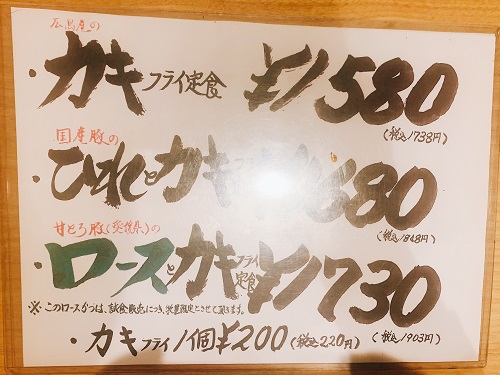 広島産の
・カキフライ定食 ¥1580
(税込1738円)
国産豚の
・ひれとカキフ 680
(税込1848円)
甘とろ豚(愛媛県)の
・ロースとカキフライ定食 ¥1730
(税込1903円)
※このロースかつは、試食販売につき、数量限定とさせて頂きます。
・カキフライ1個¥200(税込220円)